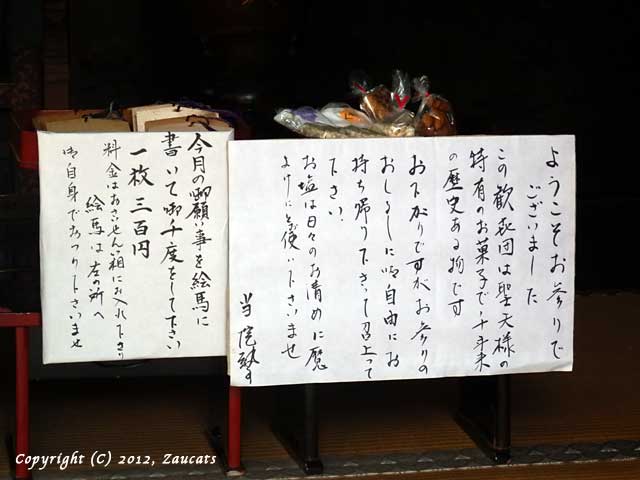 ようこそお参りで
ございました
この歓喜団は聖天様の
特有のお菓子で、千年来
の歴史ある物です
お下がりですがお参りの
おしるしに御自由にお
持ち帰り下さって召上って
下さい、
お塩は日々のお清めに魔
よけにお使い下さいませ
当院
今月の御願い事を絵馬に
書いて御千度をして下さい
一枚 三百円
料金はおさいせん箱にお入れ下さい
絵馬は左の所へ
御自身でおつり下さいませ
Copyright (C) 2012, Zaucats